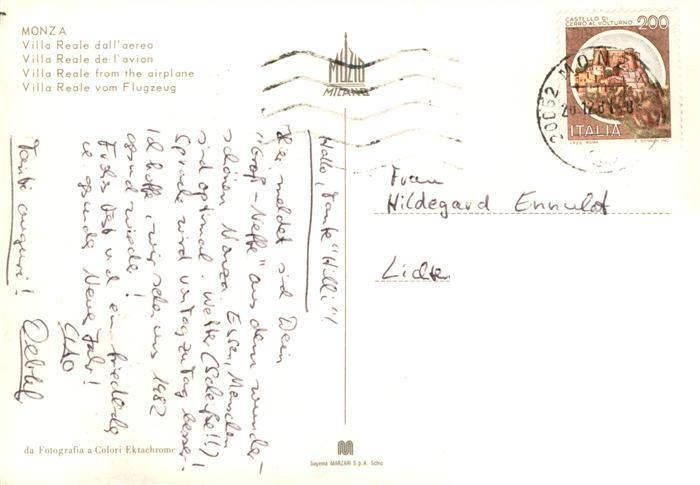 MONZA
Villa Reale dall'aereo
Villa Reale de l'avion
Villa Reale from the airplane
Villa Reale vom Flugzeug
MUZIO
MILANO
CASTELLO DI
CERRO AL VOLTURNO
200
ITALIA
20052 MONZA
Hallo, Tante "Hilli"!
Hier meldet sich Dein
"Groß-Neffe" aus dem wunder-
schönen Monza. Essen, Menschen
sind optimal. Wetter (Scheiße!!)!
Sprache wird von Tag zu Tag besser.
Ich hoffe, wir sehen uns 1982
gesund wieder!
Frohes Fest und ein friedliches
gesundes Neues Jahr!
CIAO
Detlef
Tanti auguri!
Frau
Hildegard Ennulat
da Fotografia a Colori Ektachrome
Sagema MARZARI S.p.A. Schio